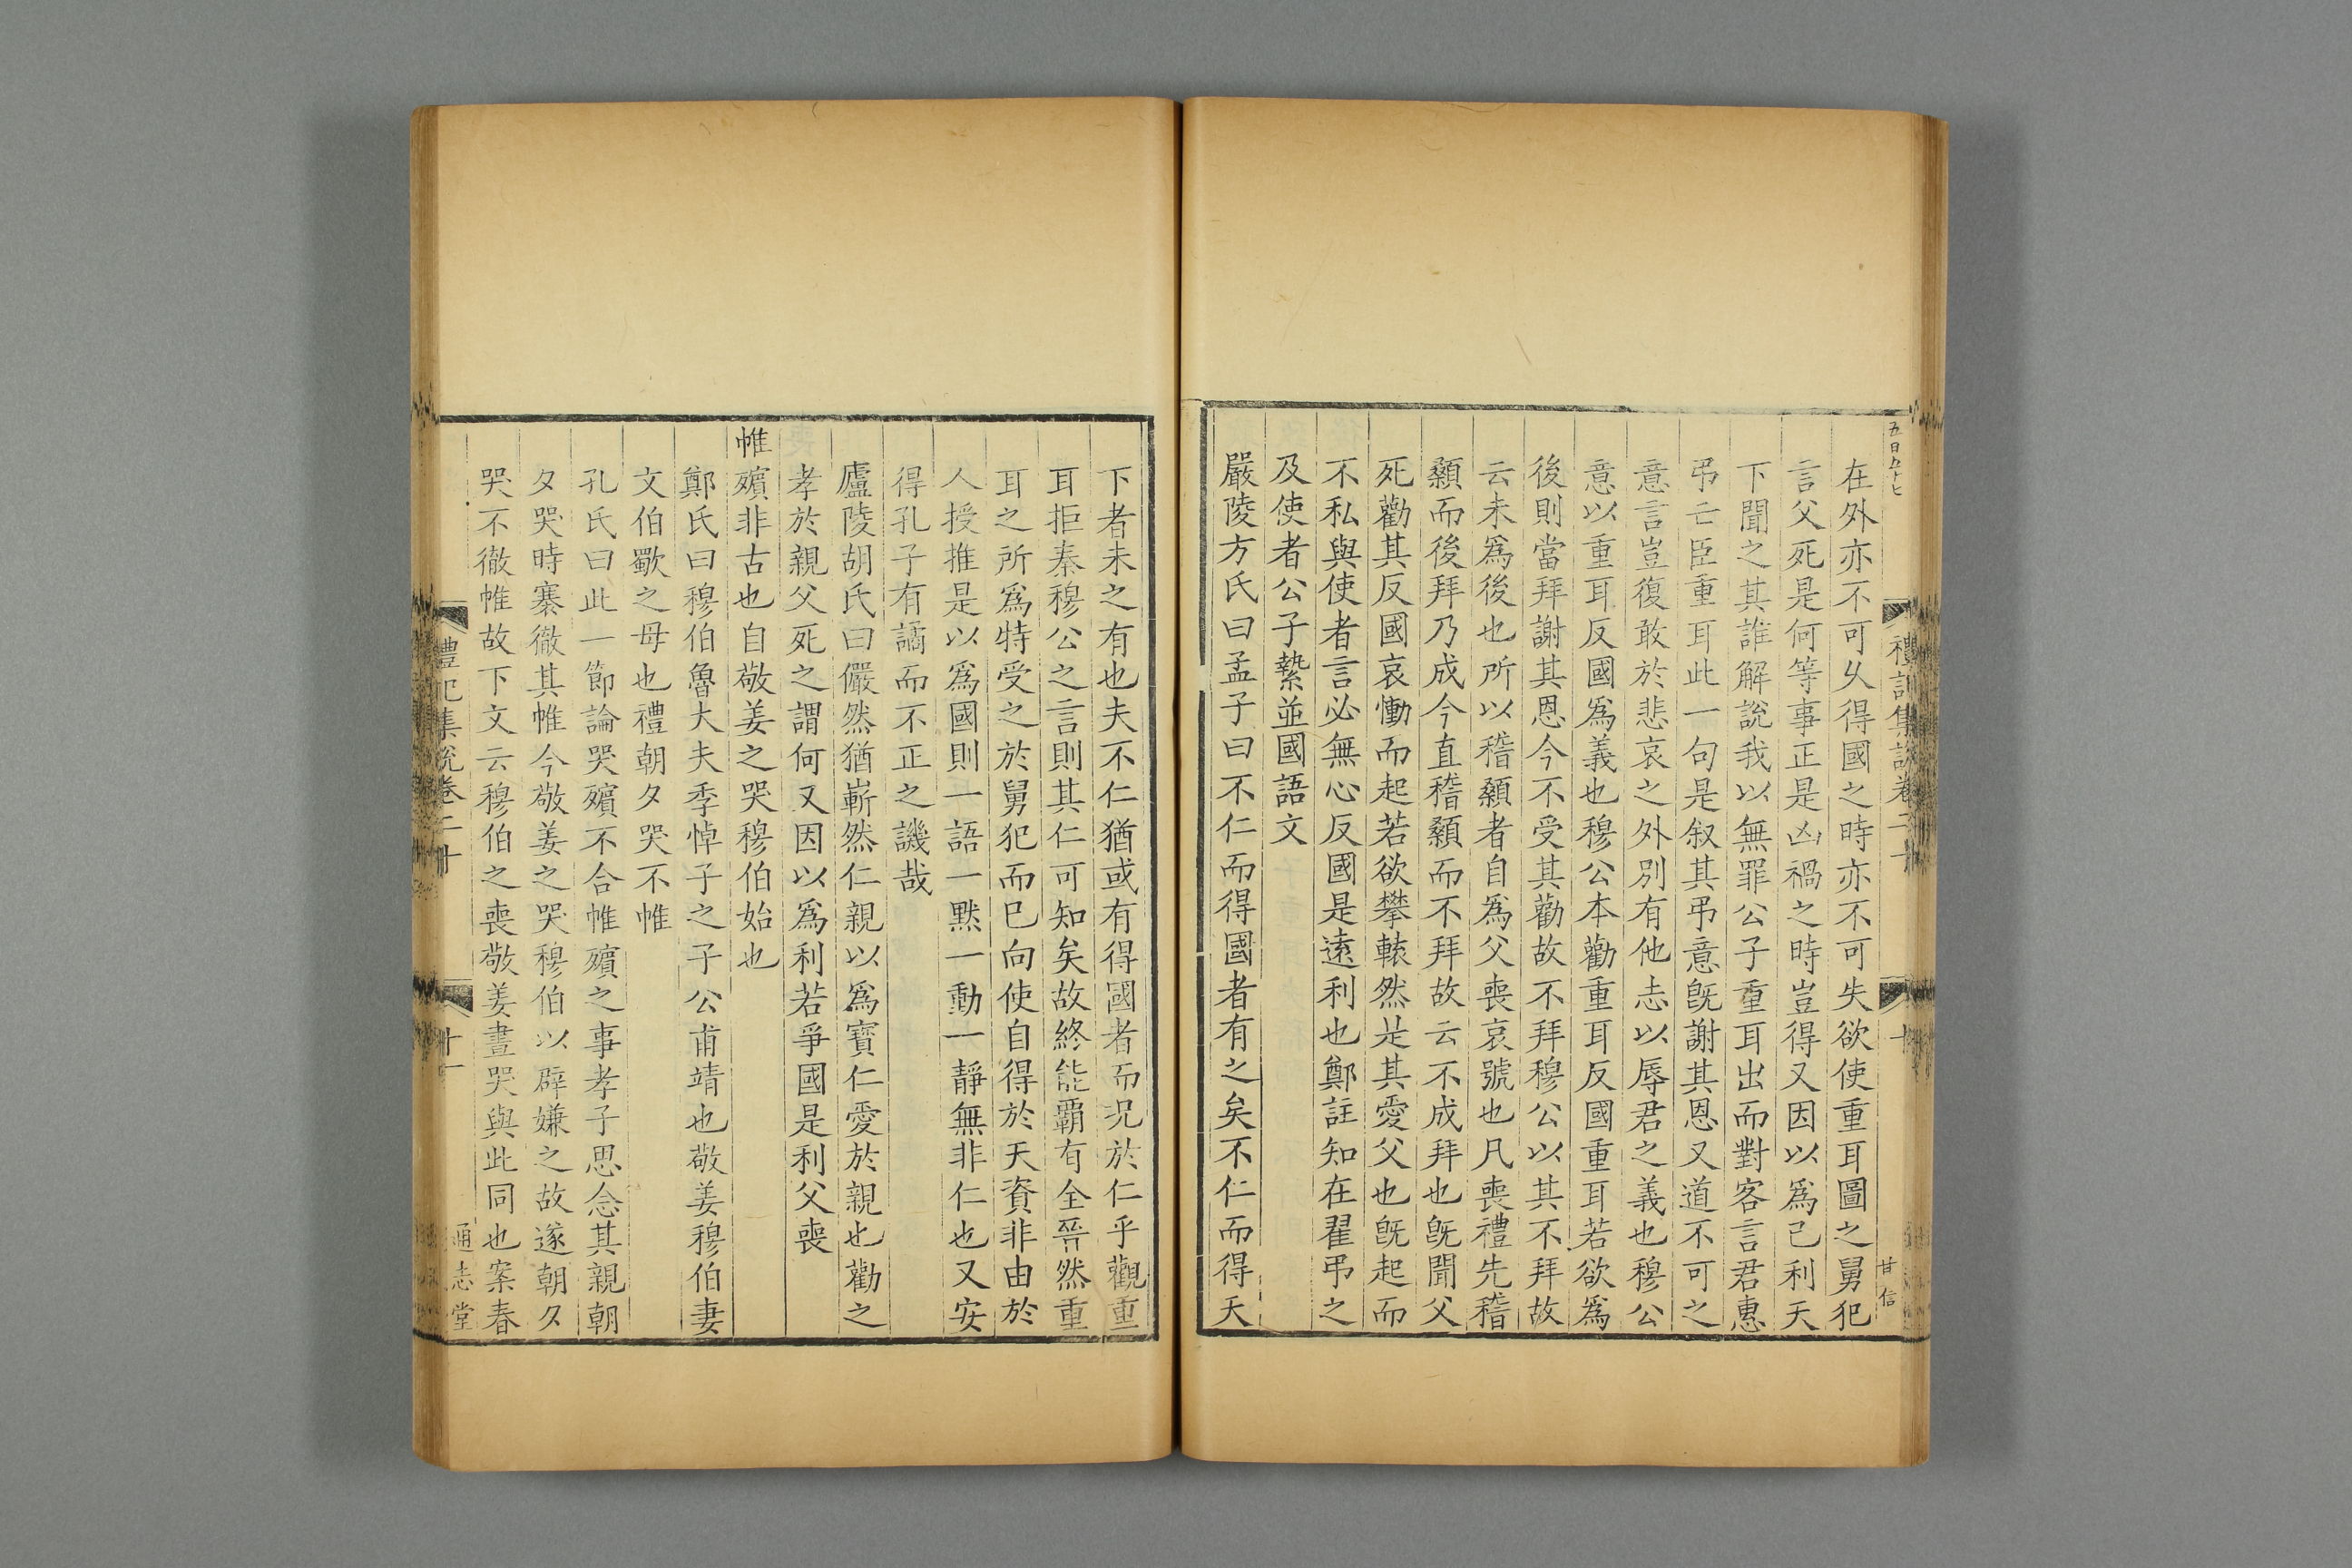 五百五十七
禮記集說卷二十
十
甘信
在外亦不可㕥得國之時亦不可失欲使重耳圖之舅犯
言父死是何等事正是凶禍之時豈得又因以爲己利天
下聞之其誰解說我以無罪公子重耳出而對客言君惠
弔亡臣重耳此一句是叙其弔意旣謝其恩又道不可之
意言豈復敢於悲哀之外別有他志以辱君之義也穆公
意以重耳反國爲義也穆公本勸重耳反國重耳若欲爲
後則當拜謝其恩今不受其勸故不拜穆公以其不拜故
云未爲後也所以稽顙者自爲父喪哀號也凡喪禮先稽
顙而後拜乃成今直稽顙而不拜故云不成拜也旣聞父
死勸其反國哀慟而起若欲攀轅然是其愛父也旣起而
不私與使者言必無心反國是遠利也鄭註知在翟弔之
及使者公子縶並國語文
嚴陵方氏曰孟子曰不仁而得國者有之矣不仁而得天
下者未之有也夫不仁猶或有得國者而况於仁乎觀重
耳拒秦穆公之言則其仁可知矣故終能霸有全晉然重
耳之所爲特受之於舅犯而已向使自得於天資非由於
人授推是以爲國則一語一黙一動一靜無非仁也又安
得孔子有譎而不正之譏哉
廬陵胡氏曰儼然猶嶄然仁親以爲寶仁愛於親也勸之
孝於親父死之謂何又因以爲利若爭國是利父喪
帷殯非古也自敬姜之哭穆伯始也
鄭氏曰穆伯魯大夫季悼子之子公甫靖也敬姜穆伯妻
文伯歜之母也禮朝夕哭不帷
孔氏曰此一節論哭殯不合帷殯之事孝子思念其親朝
夕哭時褰徹其帷今敬姜之哭穆伯以辟嫌之故遂朝夕
哭不徹帷故下文云穆伯之喪敬姜晝哭與此同也案春
禮記集說卷二十
十一
通志堂